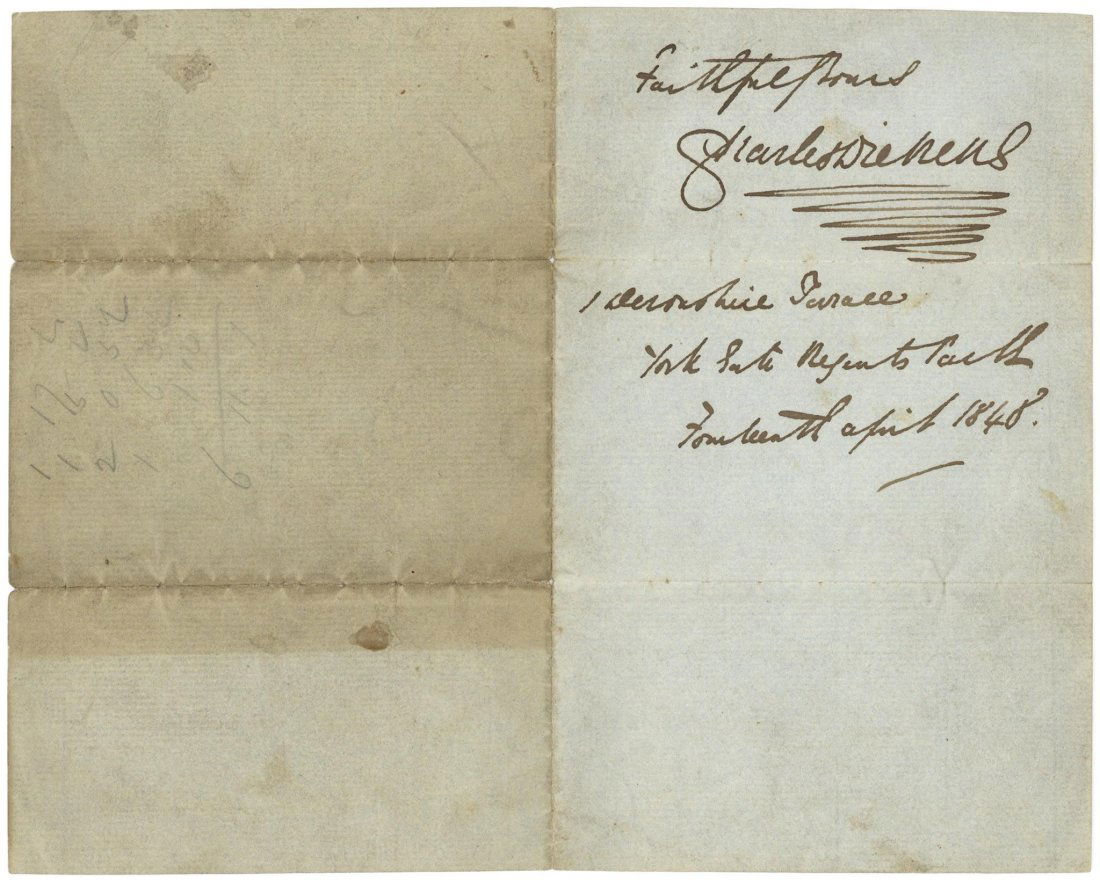 Faithfully Yours
Charles Dickens
1 Devonshire Terrace
York Gate Regents Park
Fourteenth April 1848.